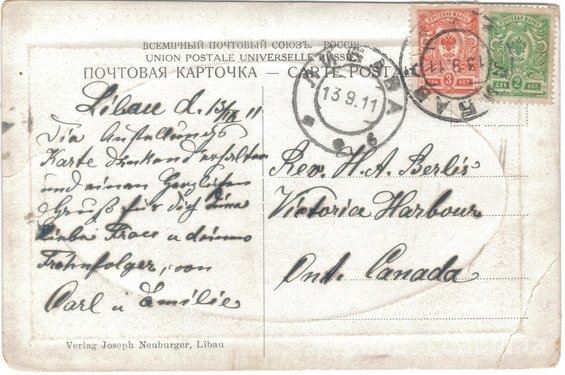 ВСЕМІРНЫЙ ПОЧТОВЫЙ СОЮЗЪ. РОССІЯ.
UNION POSTALE UNIVERSELLE RUSSIE
ПОЧТОВАЯ КАРТОЧКА — CARTE POSTALE
ЛИБАВА
13 9.11
Libau d. 13/IX 11
Die Austellungs
Karte dankend erhalten
und einen Herzlichen
Gruß für dich deine
liebe Frau u deinen
von
Carl u Emilie
Rev. H. A.
Victoria Harbour
Ont. Canada
Verlag Joseph Neuburger, Libau